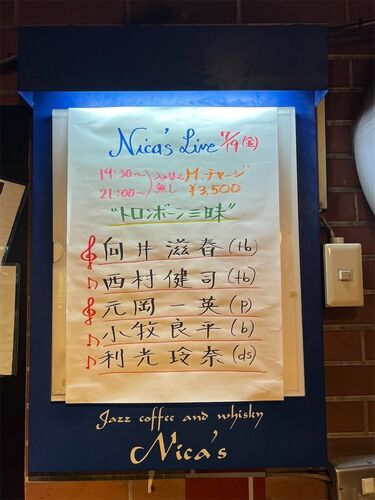 Nica's Live 7/19(金)
19:30〜
21:00〜
入れ替え無し
M.チャージ
¥3,500
"トロンボーン三昧"
向井滋春(tb)
西村健司(tb)
元岡一英(p)
小牧良平(b)
利光玲奈(ds)
Jazz coffee and whisky
Nica's